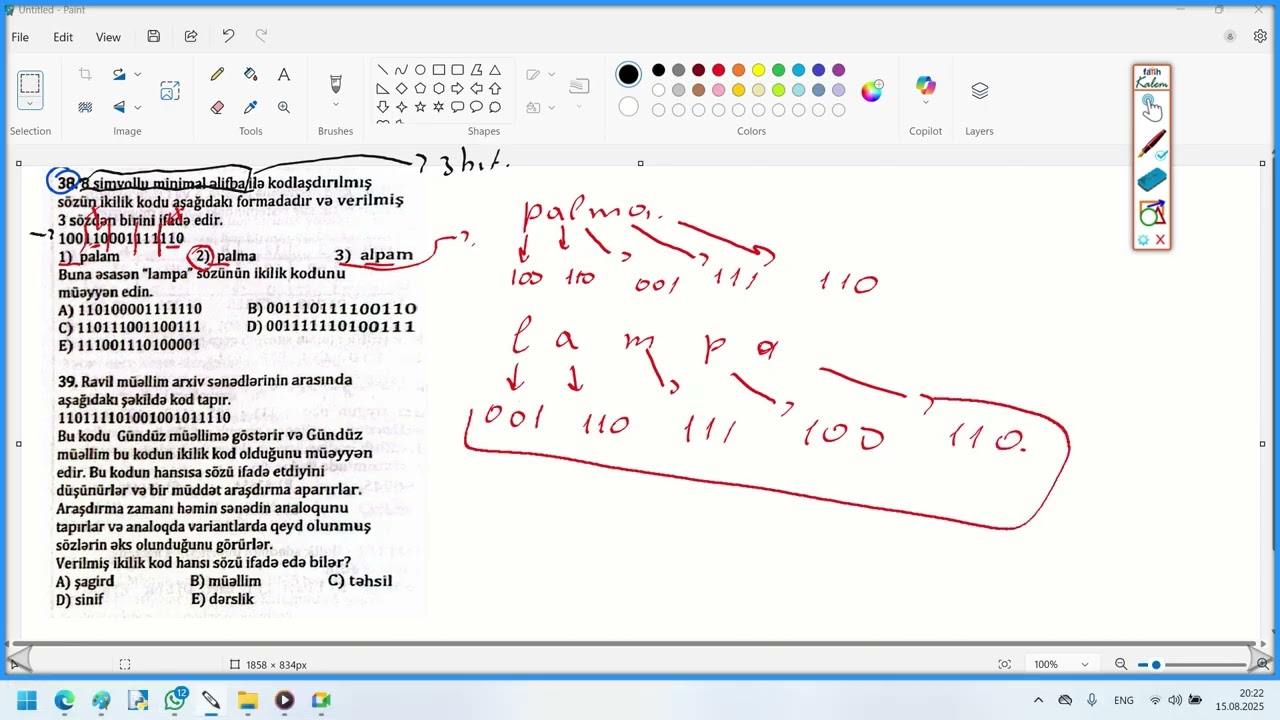 Untitled - Paint
File Edit View
Selection Image Tools Brushes Shapes Colors Copilot Layers
fatih
Kalem
→ 3 bit.
38. 8 simvollu minimal əlifba ilə kodlaşdırılmış
sözün ikilik kodu aşağıdakı formadadır və verilmiş
3 sözdən birini ifadə edir.
100110001111110
1) palam 2) palma 3) alpam
Buna əsasən "lampa" sözünün ikilik kodunu
müəyyən edin.
A) 110100001111110 B) 001110111100110
C) 110111001100111 D) 001111110100111
E) 111001110100001
39. Ravil müəllim arxiv sənədlərinin arasında
aşağıdakı şəkildə kod tapır.
110111101001001011110
Bu kodu Gündüz müəllimə göstərir və Gündüz
müəllim bu kodun ikilik kod olduğunu müəyyən
edir. Bu kodun hansısa sözü ifadə etdiyini
düşünürlər və bir müddət araşdırma aparırlar.
Araşdırma zamanı həmin sənədin analoqunu
tapırlar və analoqda variantlarda qeyd olunmuş
sözlərin əks olunduğunu görürlər.
Verilmiş ikilik kod hansı sözü ifadə edə bilər?
A) şagird B) müəllim C) təhsil
D) sinif E) dərslik
palma.
100 110 001 111 110
l a m p a
001 110 111 100 110.
1858 × 834px
100%
12
ENG
20:22
15.08.2025